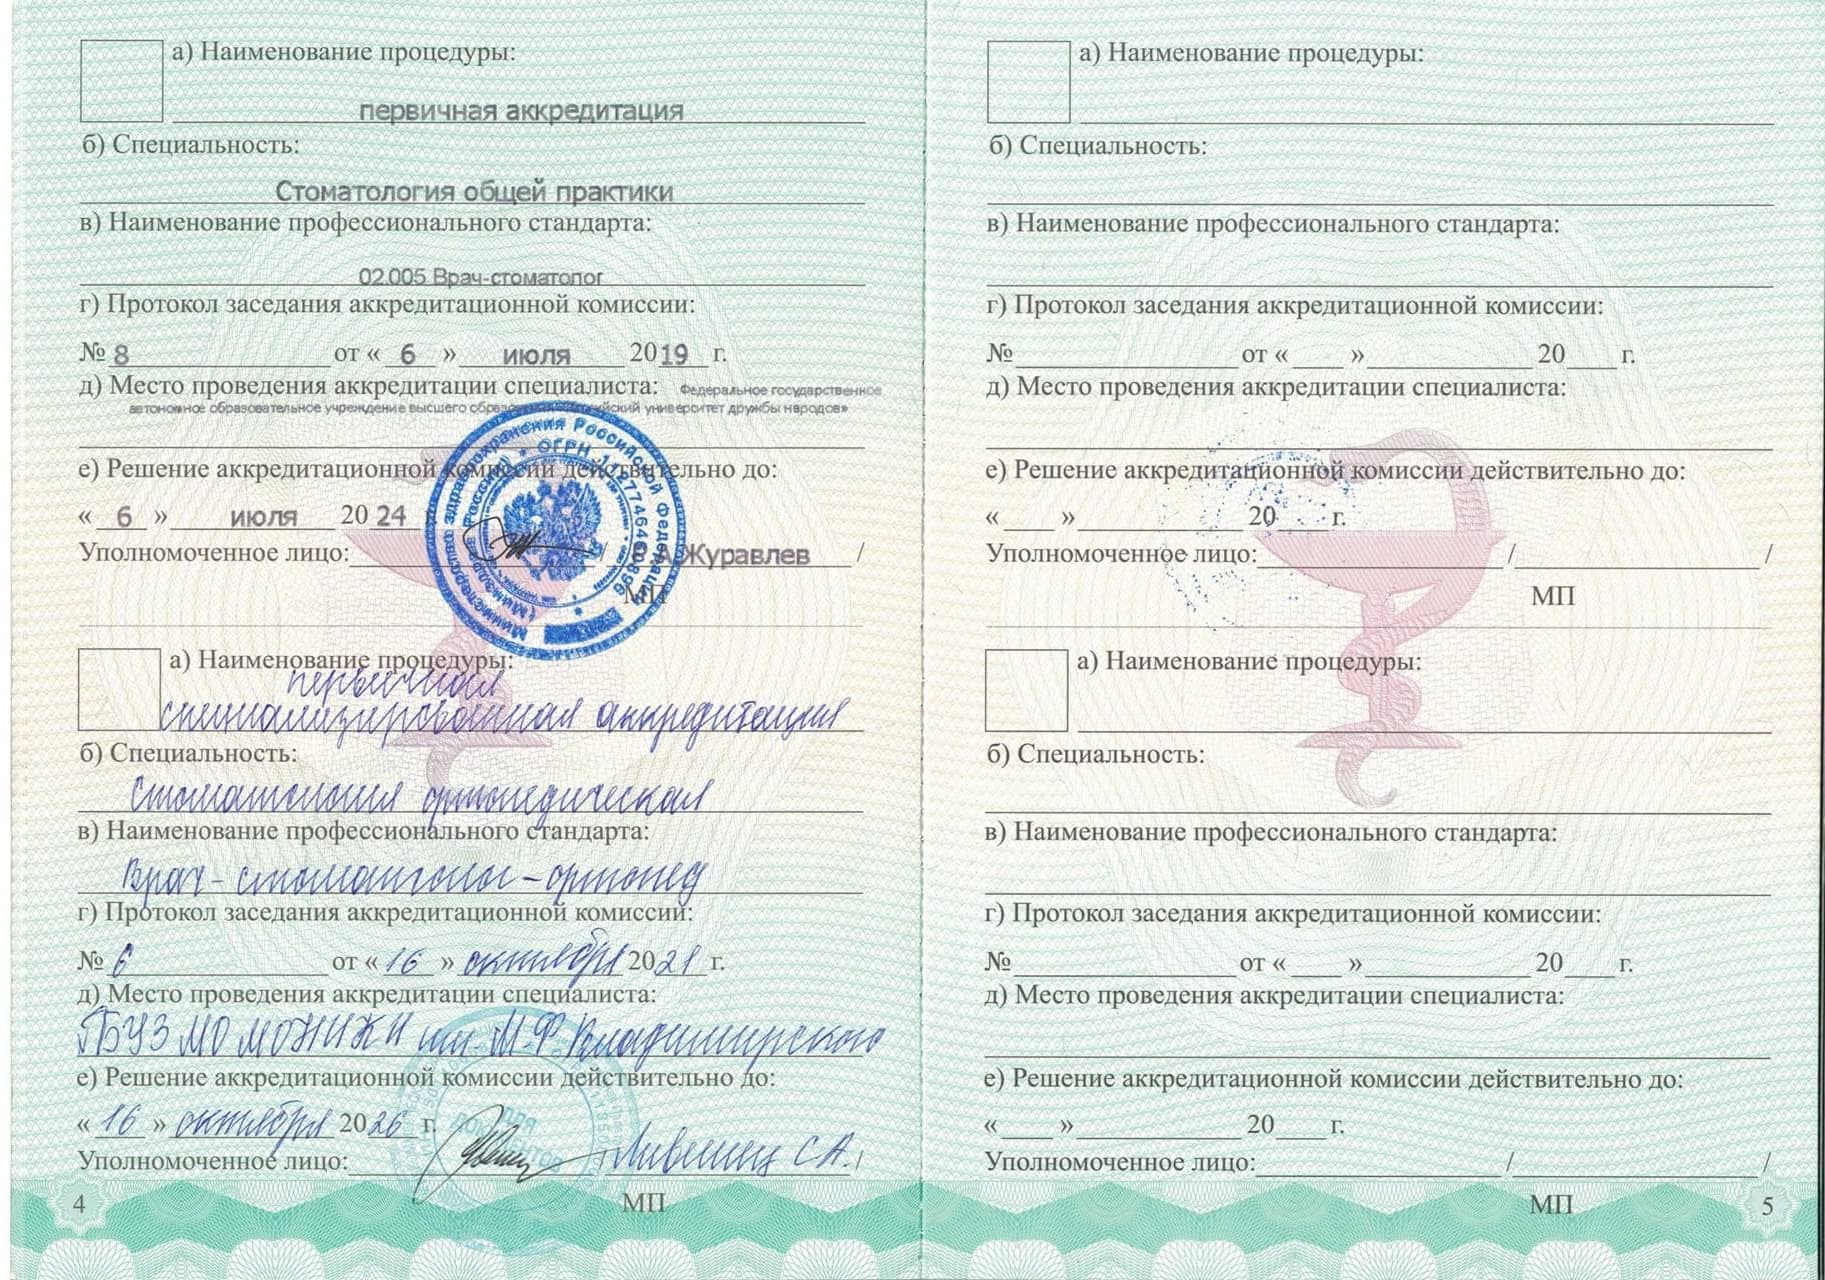 а) Наименование процедуры:
первичная аккредитация
б) Специальность:
Стоматология общей практики
в) Наименование профессионального стандарта:
02.005 Врач-стоматолог
г) Протокол заседания аккредитационной комиссии:
№ 8 от « 6 » июля 2019 г.
д) Место проведения аккредитации специалиста: Федеральное государственное
автономное образовательное учреждение высшего образования «Российский университет дружбы народов»
е) Решение аккредитационной комиссии действительно до:
« 6 » июля 2024 г.
Уполномоченное лицо: / Журавлев /
МП
Министерство здравоохранения Российской Федерации
(Минздрав России) * ОГРН 1127746460896
а) Наименование процедуры:
первичная
специализированная аккредитация
б) Специальность:
Стоматология ортопедическая
в) Наименование профессионального стандарта:
Врач-стоматолог-ортопед
г) Протокол заседания аккредитационной комиссии:
№ 6 от « 16 » октября 2021 г.
д) Место проведения аккредитации специалиста:
ГБУЗ МО МОНИКИ им. М.Ф. Владимирского
е) Решение аккредитационной комиссии действительно до:
« 16 » октября 2026 г.
Уполномоченное лицо: / Лившец С.А. /
ДЛЯ
ДОКУМЕНТОВ
МП
4
а) Наименование процедуры:
б) Специальность:
в) Наименование профессионального стандарта:
г) Протокол заседания аккредитационной комиссии:
№ от « » 20 г.
д) Место проведения аккредитации специалиста:
е) Решение аккредитационной комиссии действительно до:
« » 20 г.
Уполномоченное лицо: / /
МП
а) Наименование процедуры:
б) Специальность:
в) Наименование профессионального стандарта:
г) Протокол заседания аккредитационной комиссии:
№ от « » 20 г.
д) Место проведения аккредитации специалиста:
е) Решение аккредитационной комиссии действительно до:
« » 20 г.
Уполномоченное лицо: / /
МП
5